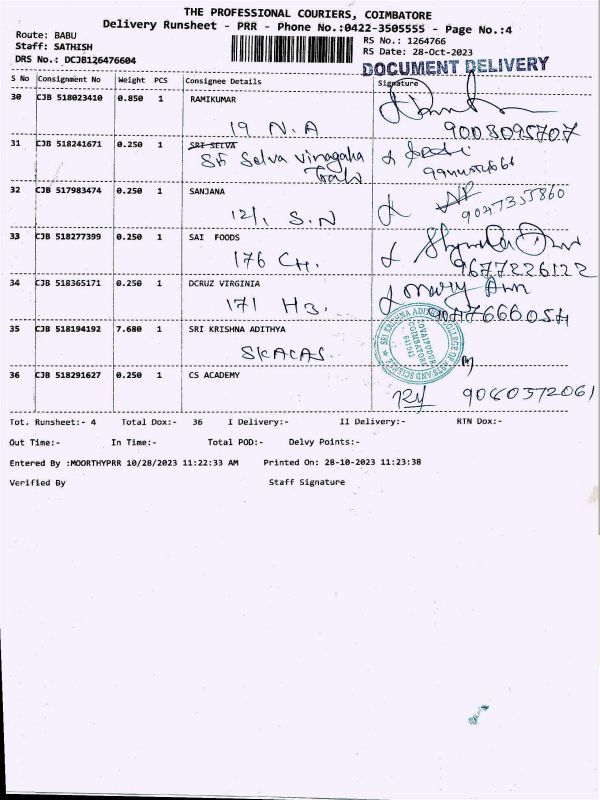 THE PROFESSIONAL COURIERS, COIMBATORE
Delivery Runsheet - PRR - Phone No.:0422-3505555 - Page No.:4
Route: BABU
Staff: SATHISH
DRS No.: DCJB126476604
RS No.: 1264766
RS Date: 28-Oct-2023
DOCUMENT DELIVERY
S No Consignment No Weight PCS Consignee Details Signature
30 CJB 518023410 0.850 1 RAMIKUMAR
19 N.A
9003095707
31 CJB 518241671 0.250 1 SRI SELVA
Sri Selva Vinayaha
32 CJB 517983474 0.250 1 SANJANA
12/1 S.N
9047355860
33 CJB 518277399 0.250 1 SAI FOODS
176 CH.
9677226122
34 CJB 518365171 0.250 1 DCRUZ VIRGINIA
Mary Ann
171 HB.
35 CJB 518194192 7.680 1 SRI KRISHNA ADITHYA
SKACAS
SRI KRISHNA ADITHYA COLLEGE OF ARTS AND SCIENCE
KOVAIPUDUR
COIMBATORE
641042
36 CJB 518291627 0.250 1 CS ACADEMY
Tot. Runsheet:- 4 Total Dox:- 36 I Delivery:- II Delivery:- RTN Dox:-
Out Time:- In Time:- Total POD:- Delvy Points:-
Entered By :MOORTHYPRR 10/28/2023 11:22:33 AM Printed On: 28-10-2023 11:23:38
Verified By Staff Signature